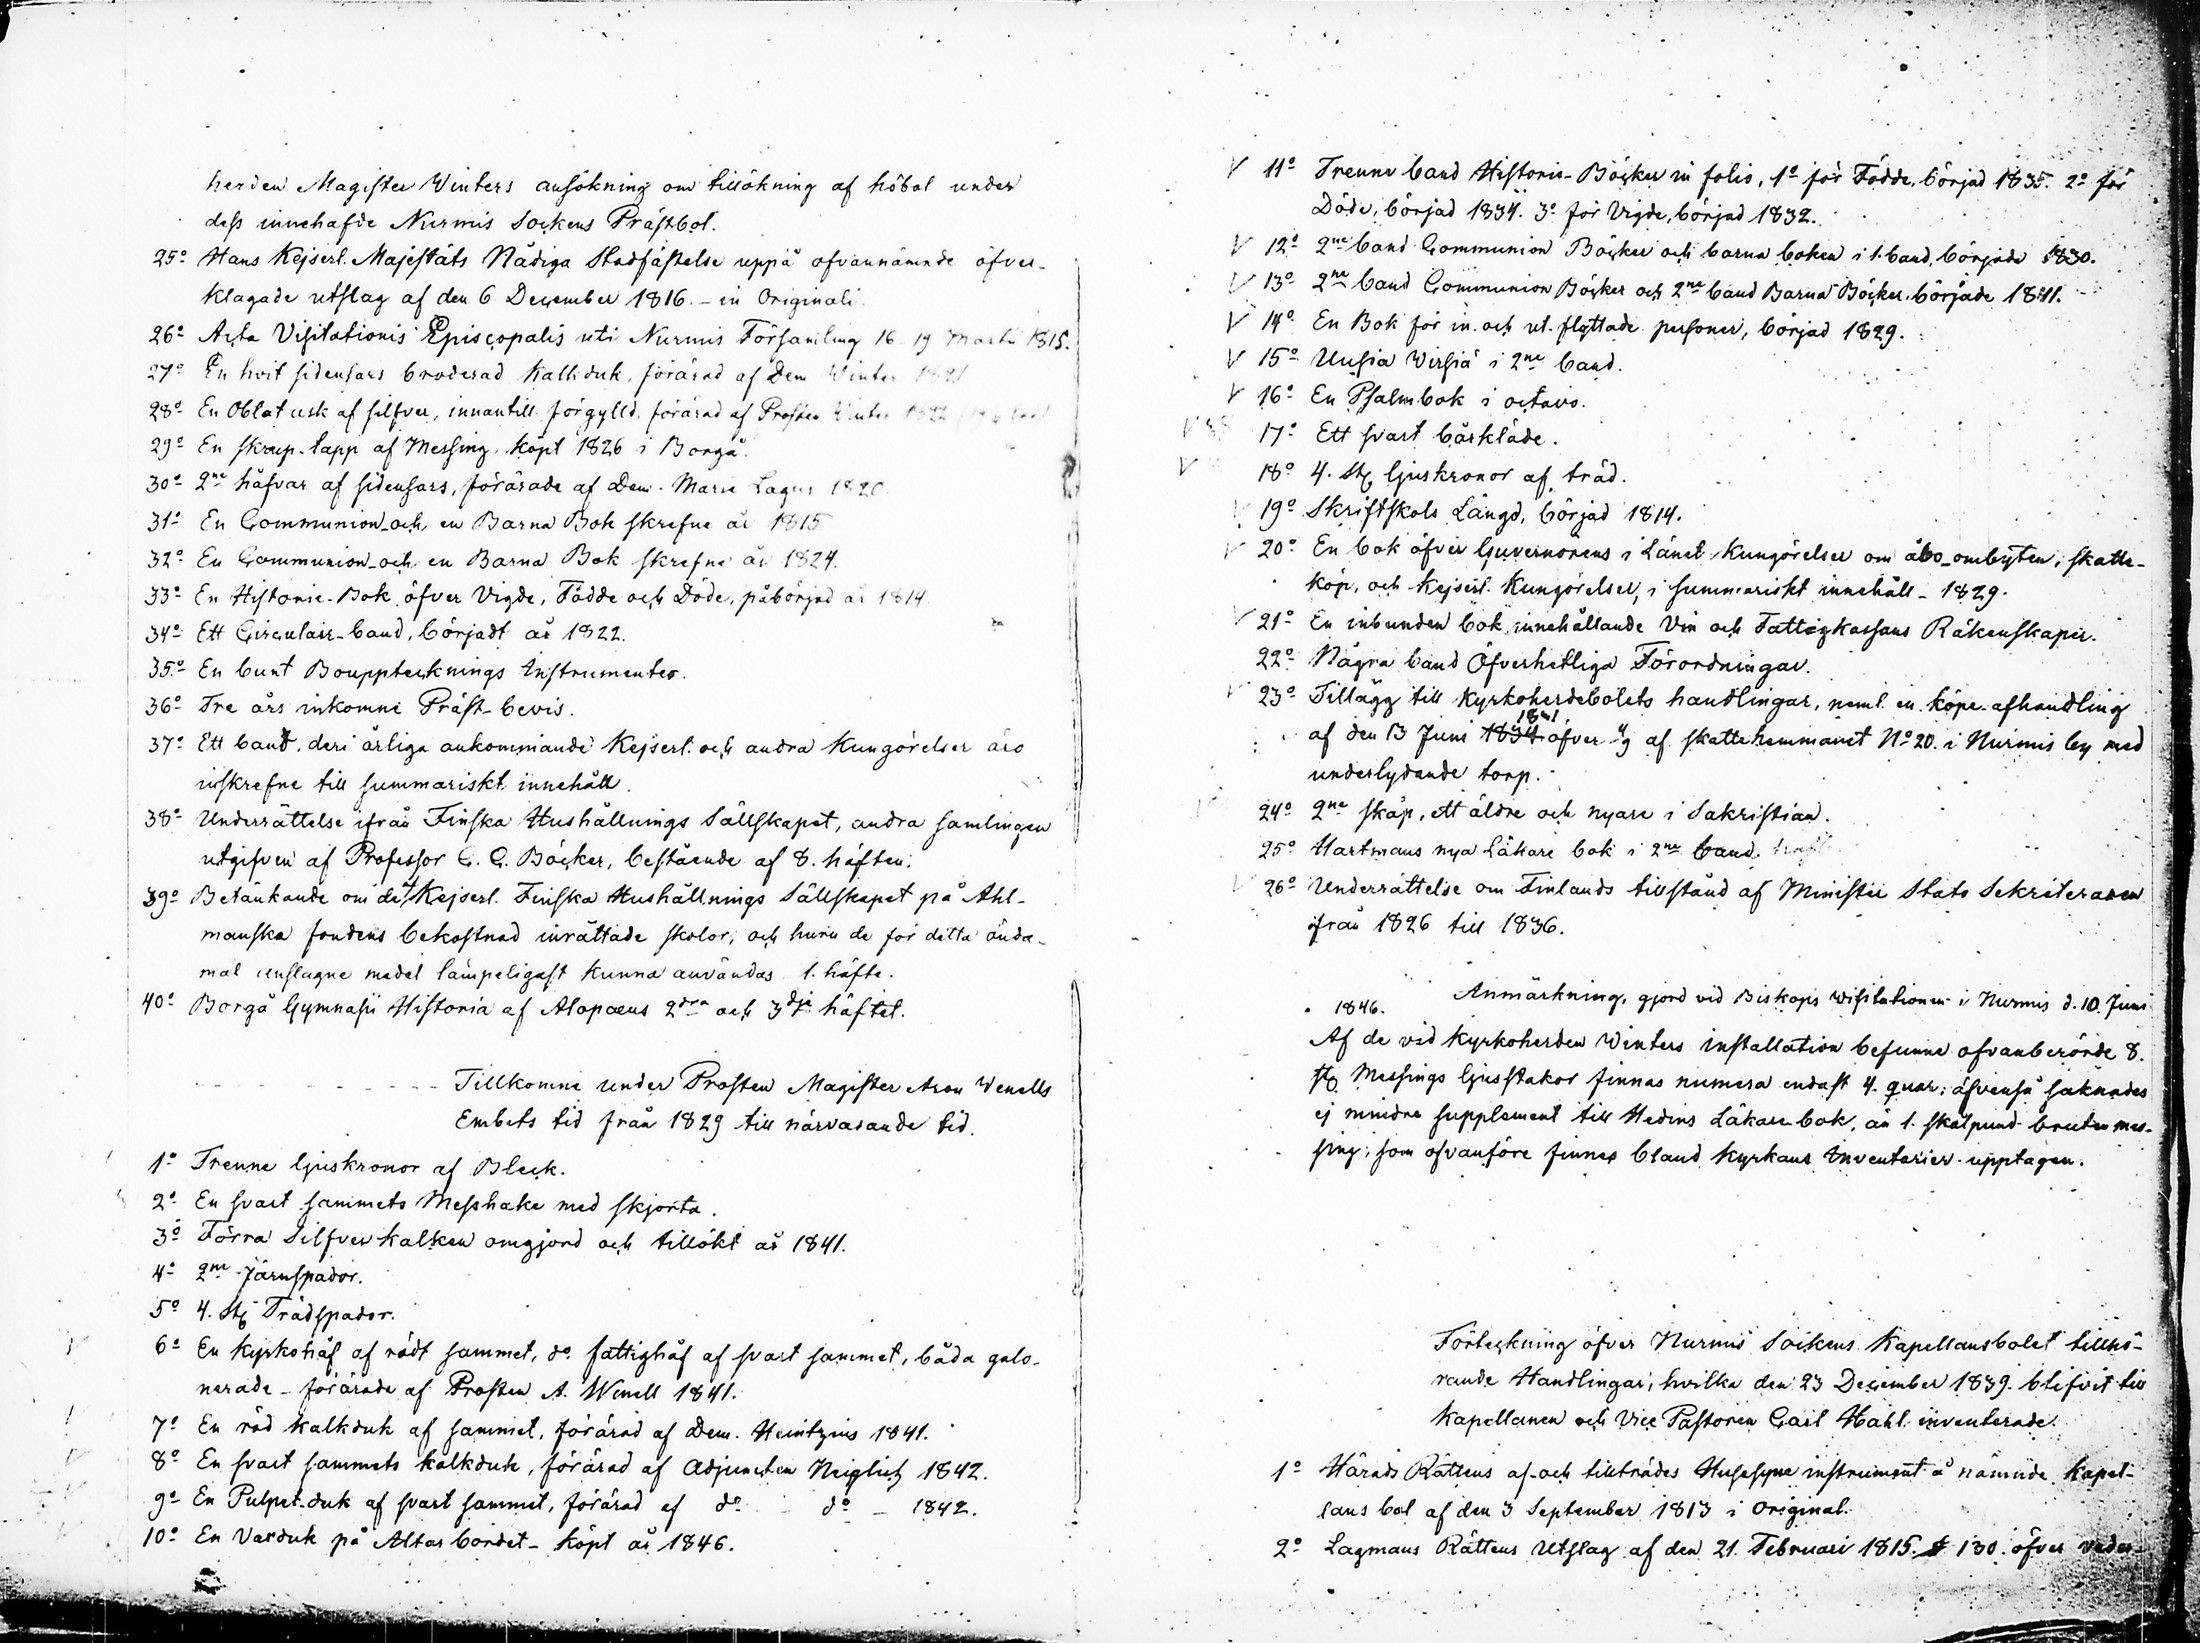 herden Magister Winters ansökning om tillökning af höbol under
dess innehafde Nurmis Sockens Prästbol.
25º Hans Kejserl. Majestäts Nådiga Stadfästelse uppå ofvannämnde öfver-
klagade utslag af den 6 December 1816. – in Originali.
26º Acta Visitationis Episcopalis uti Nurmis Församling 16–19 Martii 1815.
27º En hvit sidensars broderad Kalkduk, förärad af Dem Winter 1821
28º En Oblat ask af silfver, innantill förgylld, förärad af Prosten Winter 1822
29º En skrap-tapp af Messing, köpt 1826 i Borgå.
30º 2ne håfvar af sidensars, förärade af Dem. Maria Lagus 1820.
31º En Communion- och en Barna Bok skrefne år 1815
32º En Communion- och en Barna Bok skrefne år 1824.
33º En Historie-Bok öfver Vigde, Födde och Döde, påbörjad år 1814.
34º Ett Circulair-band, börjadt år 1822.
35º En bunt Bouppteknings Instrumenter.
36º Tre års inkomne Präst-bevis.
37º Ett band, deri årliga ankommande Kejserl. och andra Kungörelser äro
inskrefne till summariskt innehåll.
38º Underrättelse ifrån Finska Hushållnings Sällskapet, andra samlingen
utgifven af Professor C. C. Böcker, bestående af 8. häften.
39º Betänkande om det Kejserl. Finska Hushållnings Sällskapet på Ahl-
manska fondens bekostnad inrättade skolor, och huru de för detta ända-
mål anslagne medel lämpeligast kunna användas 1. häfte.
40º Borgå Gymnasii Historia af Alopæus 2dra och 3dje häftet.
Tillkomne under Prosten Magister Aron Wenells
Embets tid från 1829 till närvarande tid.
1º Trenne ljuskronor af Bleck.
2º En svart sammets Messhake med skjorta.
3º Förra Silfver kalken omgjord och tillökt år 1841.
4º 2ne Järnspador.
5º 4. st. Trädspador.
6º En kyrkohåf af rödt sammet, dº fattighåf af svart sammet, båda galo-
nerade – förärade af Prosten A. Wenell 1841.
7º En röd kalkduk af sammet, förärad af Dem. Heintzius 1841.
8º En svart sammets kalkduk, förärad af Adjuncten Neiglick 1842.
9º En Pulpet-duk af svart sammet, förärad af dº – dº – 1842.
10º En Vaxduk på Altar bordet – köpt år 1846.
11º Trenne band Historie-Böcker in folio, 1º för Födde, börjad 1835. 2º för
Döde, börjad 1834. 3º för Vigde, börjad 1832.
12º 2ne band Communion Böcker och barna boken i 1. band, började 1830.
13º 2ne band Communion Böcker och 2ne band Barna Böcker, började 1841.
14º En Bok för in- och ut-flyttade personer, börjad 1829.
15º Uusia Wirsiä i 2ne band.
16º En Psalmbok i octavo.
17º Ett svart bårkläde.
18º 4. st. ljuskronor af träd.
19º Skriftskols Längd, börjad 1814.
20º En bok öfver Guvernörens i Länet Kungörelser om åbo-ombyten, skatte-
köp, och Kejserl. Kungörelser, i summariskt innehåll – 1829.
21º En inbunden bok, innehållande Vin och Fattigkassans Räkenskaper.
22º Några band Öfverhetliga Förordningar.
23º Tillägg till Kyrkoherdebolets handlingar, neml. en köpe-afhandling
1841
af den 13 Juni 1834 öfver af skattehemmanet Nº 20. i Nurmis by med
underlydande torp.
24º 2ne skåp, ett äldre och nyare i Sakristian.
25º Hartmans nya Läkare bok i 2ne band
26º Underrättelse om Finlands tillstånd af Minister Stats Sekreteraren
ifrån 1826 till 1836.
Anmärkning, gjord vid Biskops visitationen i Nurmis d. 10. Juni
1846.
Af de vid Kyrkoherden Winters installation befunne ofvanberörde 8.
st. Messings ljusstakor finnas numera endast 4. qvar; äfvenså saknades
ej mindre supplement till Hedins Läkare bok, än 1. skålpund bruten mes-
sing; som ofvanföre finnes bland Kyrkans Inventarier upptagen.
Förteckning öfver Nurmis Sockens Kapellansbolet tillhö-
rande Handlingar, hvilka den 23 December 1839. blifvit till
Kapellanen och Vice Pastoren Carl Hahl inventerade.
1º Härads Rättens af- och tillträdes Husesyne instrument å nämnde Kapel-
lans bol af den 3 September 1813 i Original.
2º Lagmans Rättens Utslag af den 21. Februari 1815. § 130. öfver veder-